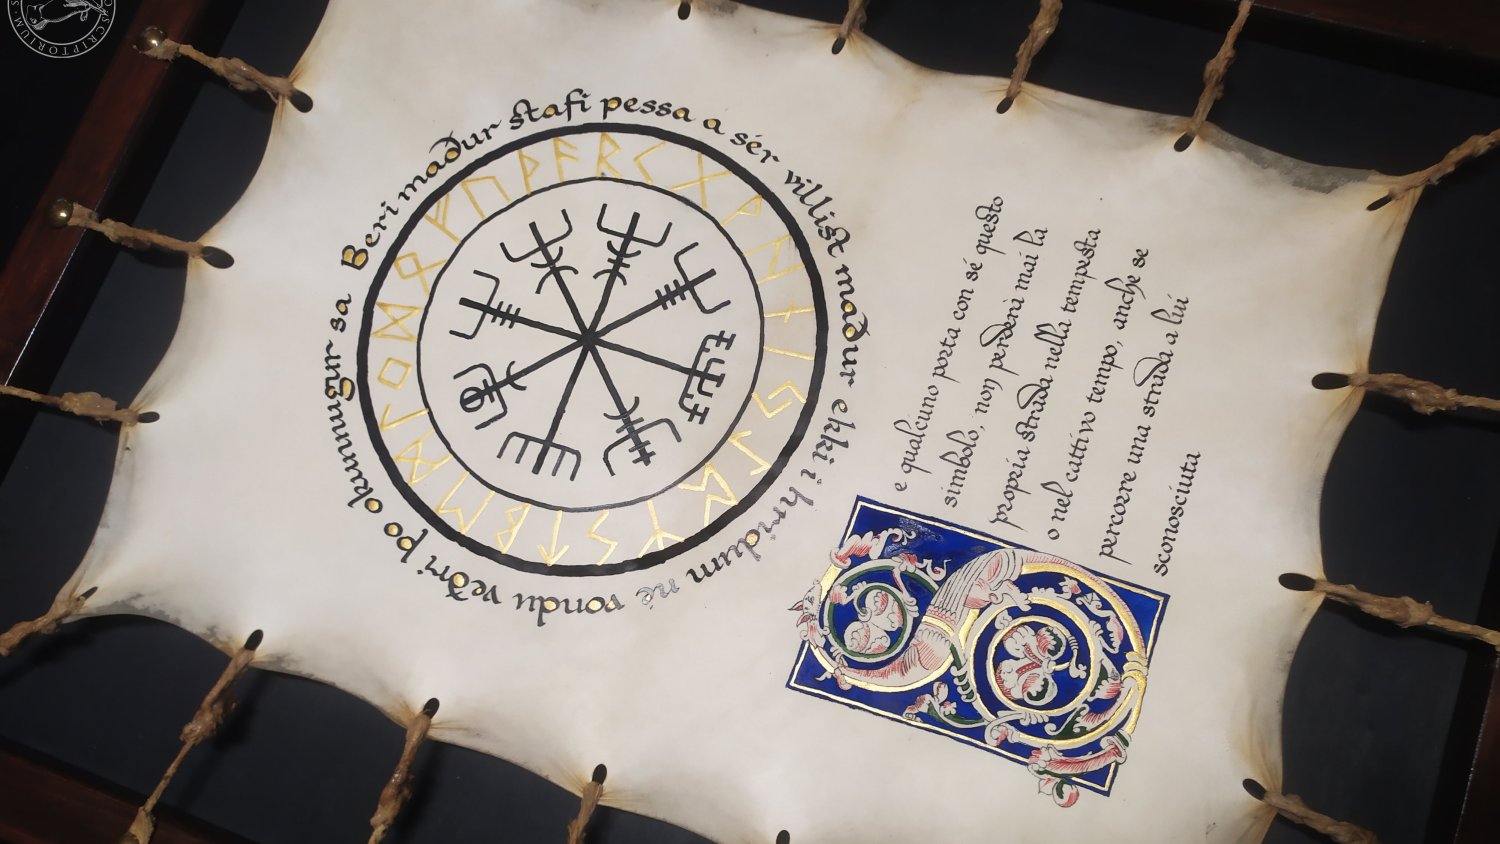 SCRIPTORIUM
Beri maður stafi pessa a sér villist maður ekki i hridum né vondu veðri þo okunnugur sa
ᚠ ᚢ ᚦ ᚨ ᚱ ᚲ ᚷ ᚹ ᚺ ᚾ ᛁ ᛃ ᛇ ᛈ ᛉ ᛊ ᛏ ᛒ ᛖ ᛗ ᛚ ᛜ ᛞ ᛟ
Se qualcuno porta con sé questo
simbolo, non perderà mai la
propria strada nella tempesta
o nel cattivo tempo, anche se
percorre una strada a lui
sconosciuta